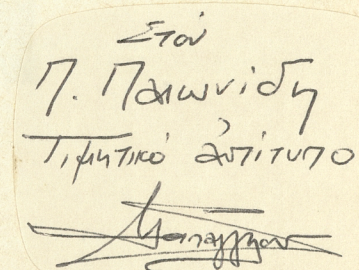 Στόν
Π. Παιωνίδη
Τιμητικό ἀντίτυπο